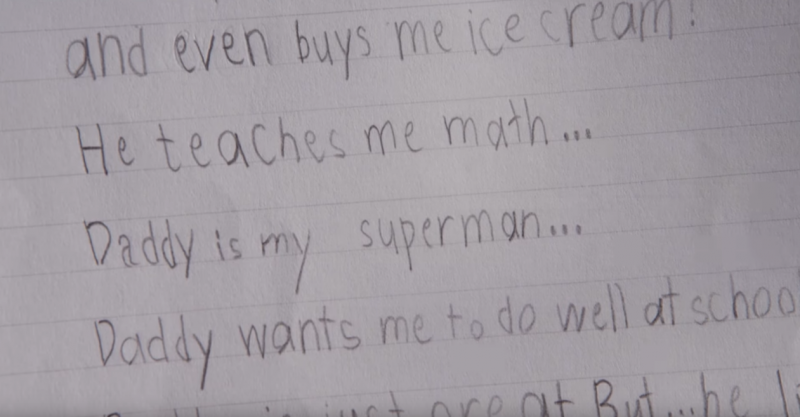 and even buys me ice cream!
He teaches me math...
Daddy is my superman...
Daddy wants me to do well at schoo
is just great But...he